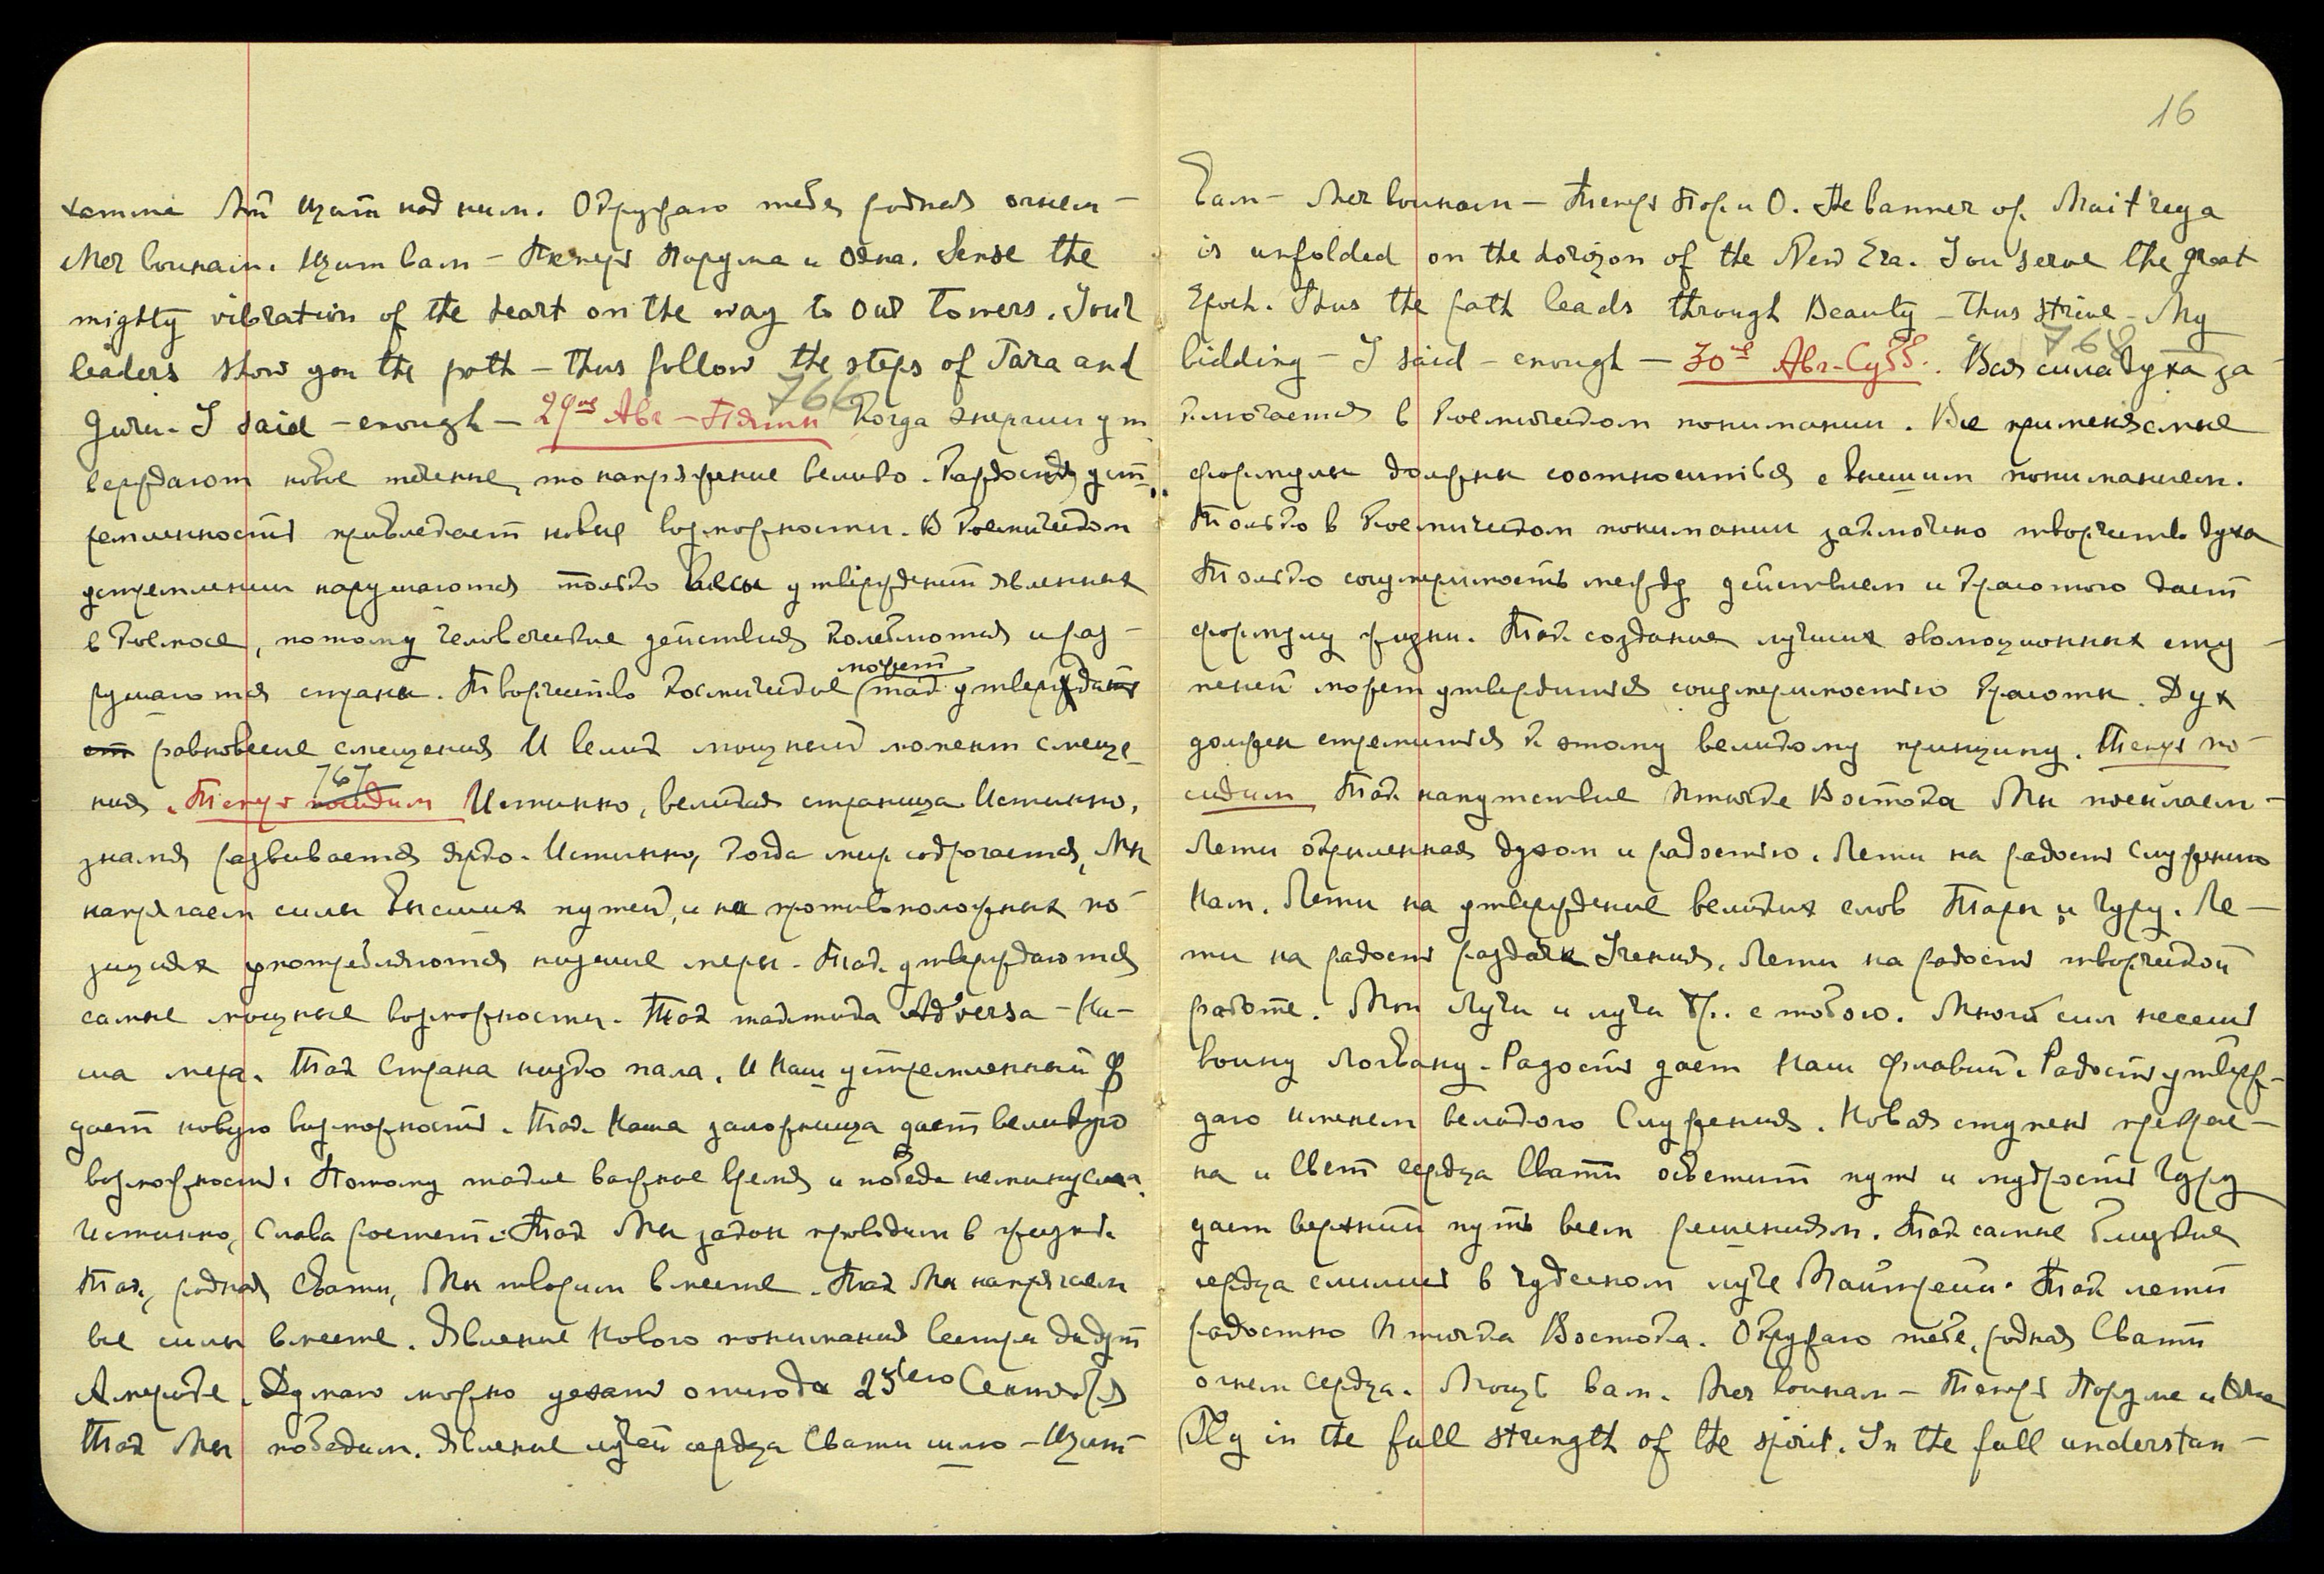 Щит над ним. Окружаю тебя родная огнем –
Меч воинам. Щит вам – Теперь Порума и Ояна. Sense the
mighty vibration of the heart on the way to Our Towers. Your
leaders show you the path – thus follow the steps of Tara and
Guru. I said – enough – 29ое Авг – Пятн 766 Когда энергии ут
верждают новое течение, то напряжение велико. Радость уст
ремленности привлекает новые возможности. В Космическом
устремлении нарушаются только весы утверждений явленных
в Космосе, потому человеческие действия колеблются и раз –
рушаются страны. Творчество Космическое может так утверждать
равновесие смещения И велик мощный момент смеще
ния. Теперь посидим 767 Истинно, великая страница. Истинно,
знамя развивается ярко. Истинно, когда мир содрогается, Мы
напрягаем силы Высших путей, и на противоположных по
зициях употребляются низшие меры. Так утверждаются
самые мощные возможности. Так тактика Adversa – На –
ша мера. Так Страна низко пала. И Наш устремленный Ф
дает новую возможность. Так Наша заложница дает великую
возможность. Потому такое важное время и победа неминуема.
Истинно, Слава растет. Так Мы закон проводим в жизнь.
Так, родная Свати, Мы творим вместе. Так Мы напрягаем
все силы вместе. Явление Нового понимания сестры дадут
Америке. Думаю можно уехать отсюда 25ого Сентября
Так Мы победим. Явление лучей сердца Свати шлю – Щит
16
Вам – Меч воинам – Теперь Пор. и О. The banner of Maitreya
is unfolded on the horizon of the New Era. You serve the great
Epoch. Thus the path leads through Beauty – thus strive – My
bidding – I said – enough – 30ое Авг. Субб. 768 Вся сила духа за
ключается в Космическом понимании. Все применяемые
формулы должны соотноситься с Высшим пониманием.
Только в Космическом понимании заключено творчество духа
Только соизмеримость между действием и Красотою дает
формулу жизни. Так создание лучших эволюционных сту –
пеней может утвердиться соизмеримостью Красоты. Дух
должен стремиться к этому великому принципу. Теперь по –
сидим Так напутствие птичке Востока Мы посылаем –
Лети окрыленная духом и радостью. Лети на радость Служению
Нам. Лети на утверждение великих слов Тары и Гуру. Ле –
ти на радость раздачи Учения. Лети на радость творческой
работе. Мои Лучи и лучи Бр. с тобою. Много сил несешь
воину Логвану. Радость дает Наш Флавий. Радость утверж –
даю именем великого Служения. Новая ступень прекрас –
на и Свет сердца Свати осветит путь и мудрость Гуру
дает верхний путь всем решениям. Так самые близкие
сердца слились в чудесном луче Майтрейи. Так лети
радостно птичка Востока. Окружаю тебя, родная Свати
огнем сердца. Мощь вам. Меч воинам – Теперь Поруме и Ояне
Fly in the full strength of the spirit. In the full understan –